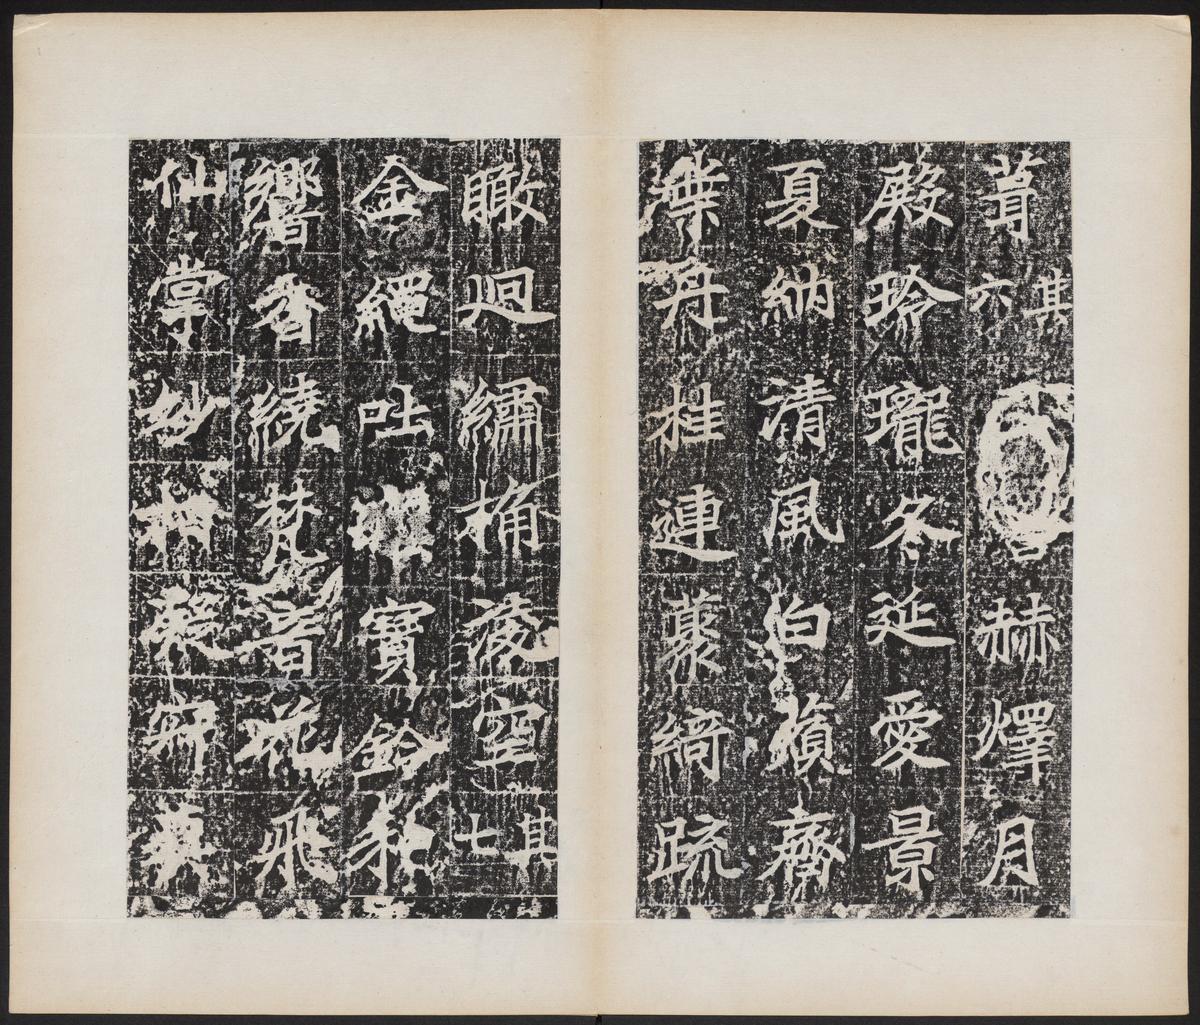 葺其六赫燡月
殿玲瓏冬延愛景
夏納清風白蘋齊
葉丹桂連藂綺疏
瞰迥繡桷淩空其七
金繩吐寶鈴和
響香繞梵音花飛
仙掌